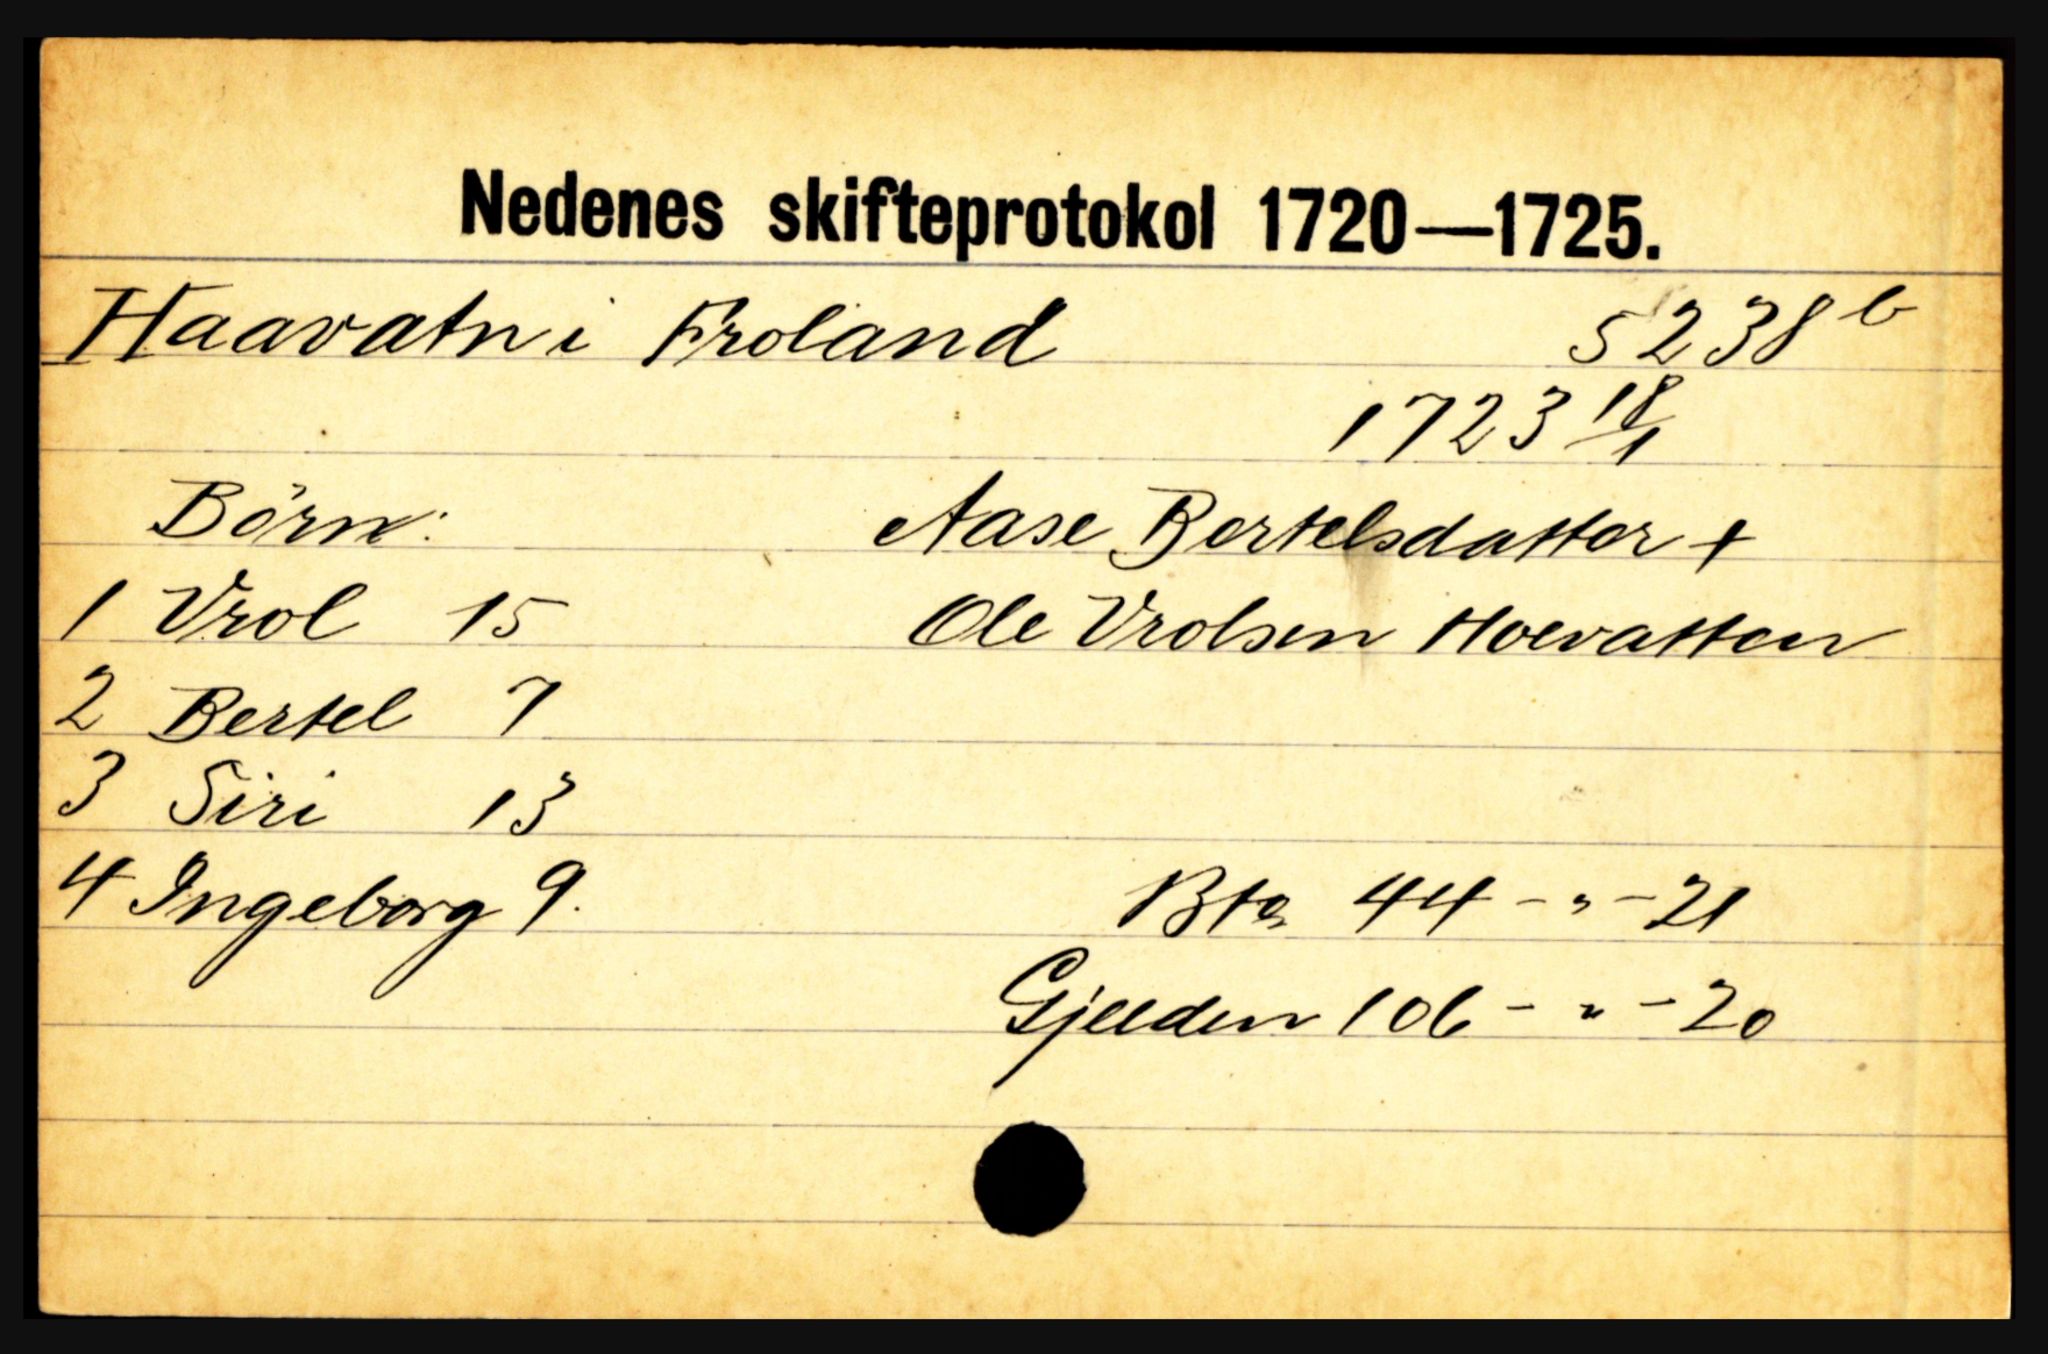 Nedenes skifteprotokol 1720—1725.
Haavatn i Froland 5 238 b
1723 18/1
Börn: Aase Bertelsdatter +
1 Vrol 15 Ole Vrolsen Hoevatten
2 Bertel 7
3 Siri 13
4 Ingeborg 9. Bto 44 - " - 21
Gjelden 106 - " - 20